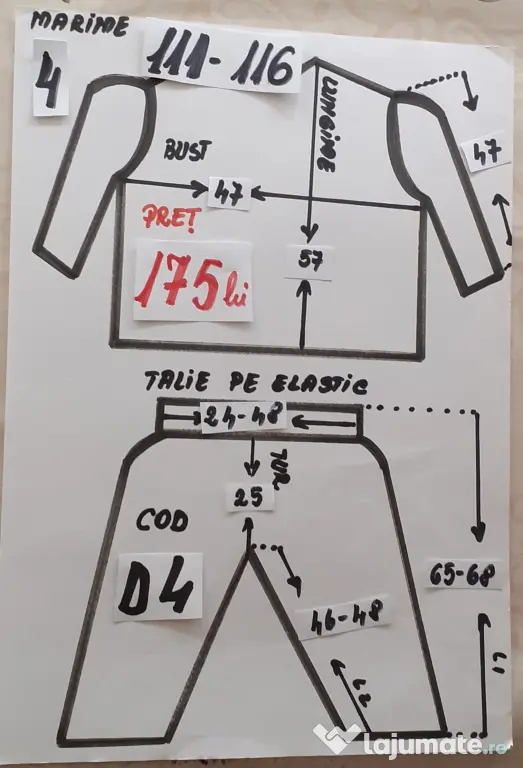 MARIME
4
111-116
LUNGIME
47
BUST
47
PREȚ
175 lei
57
TALIE PE ELASTIC
24-48
TUR
25
COD
D4
65-68
46-48
L1
L2
lajumate.ro